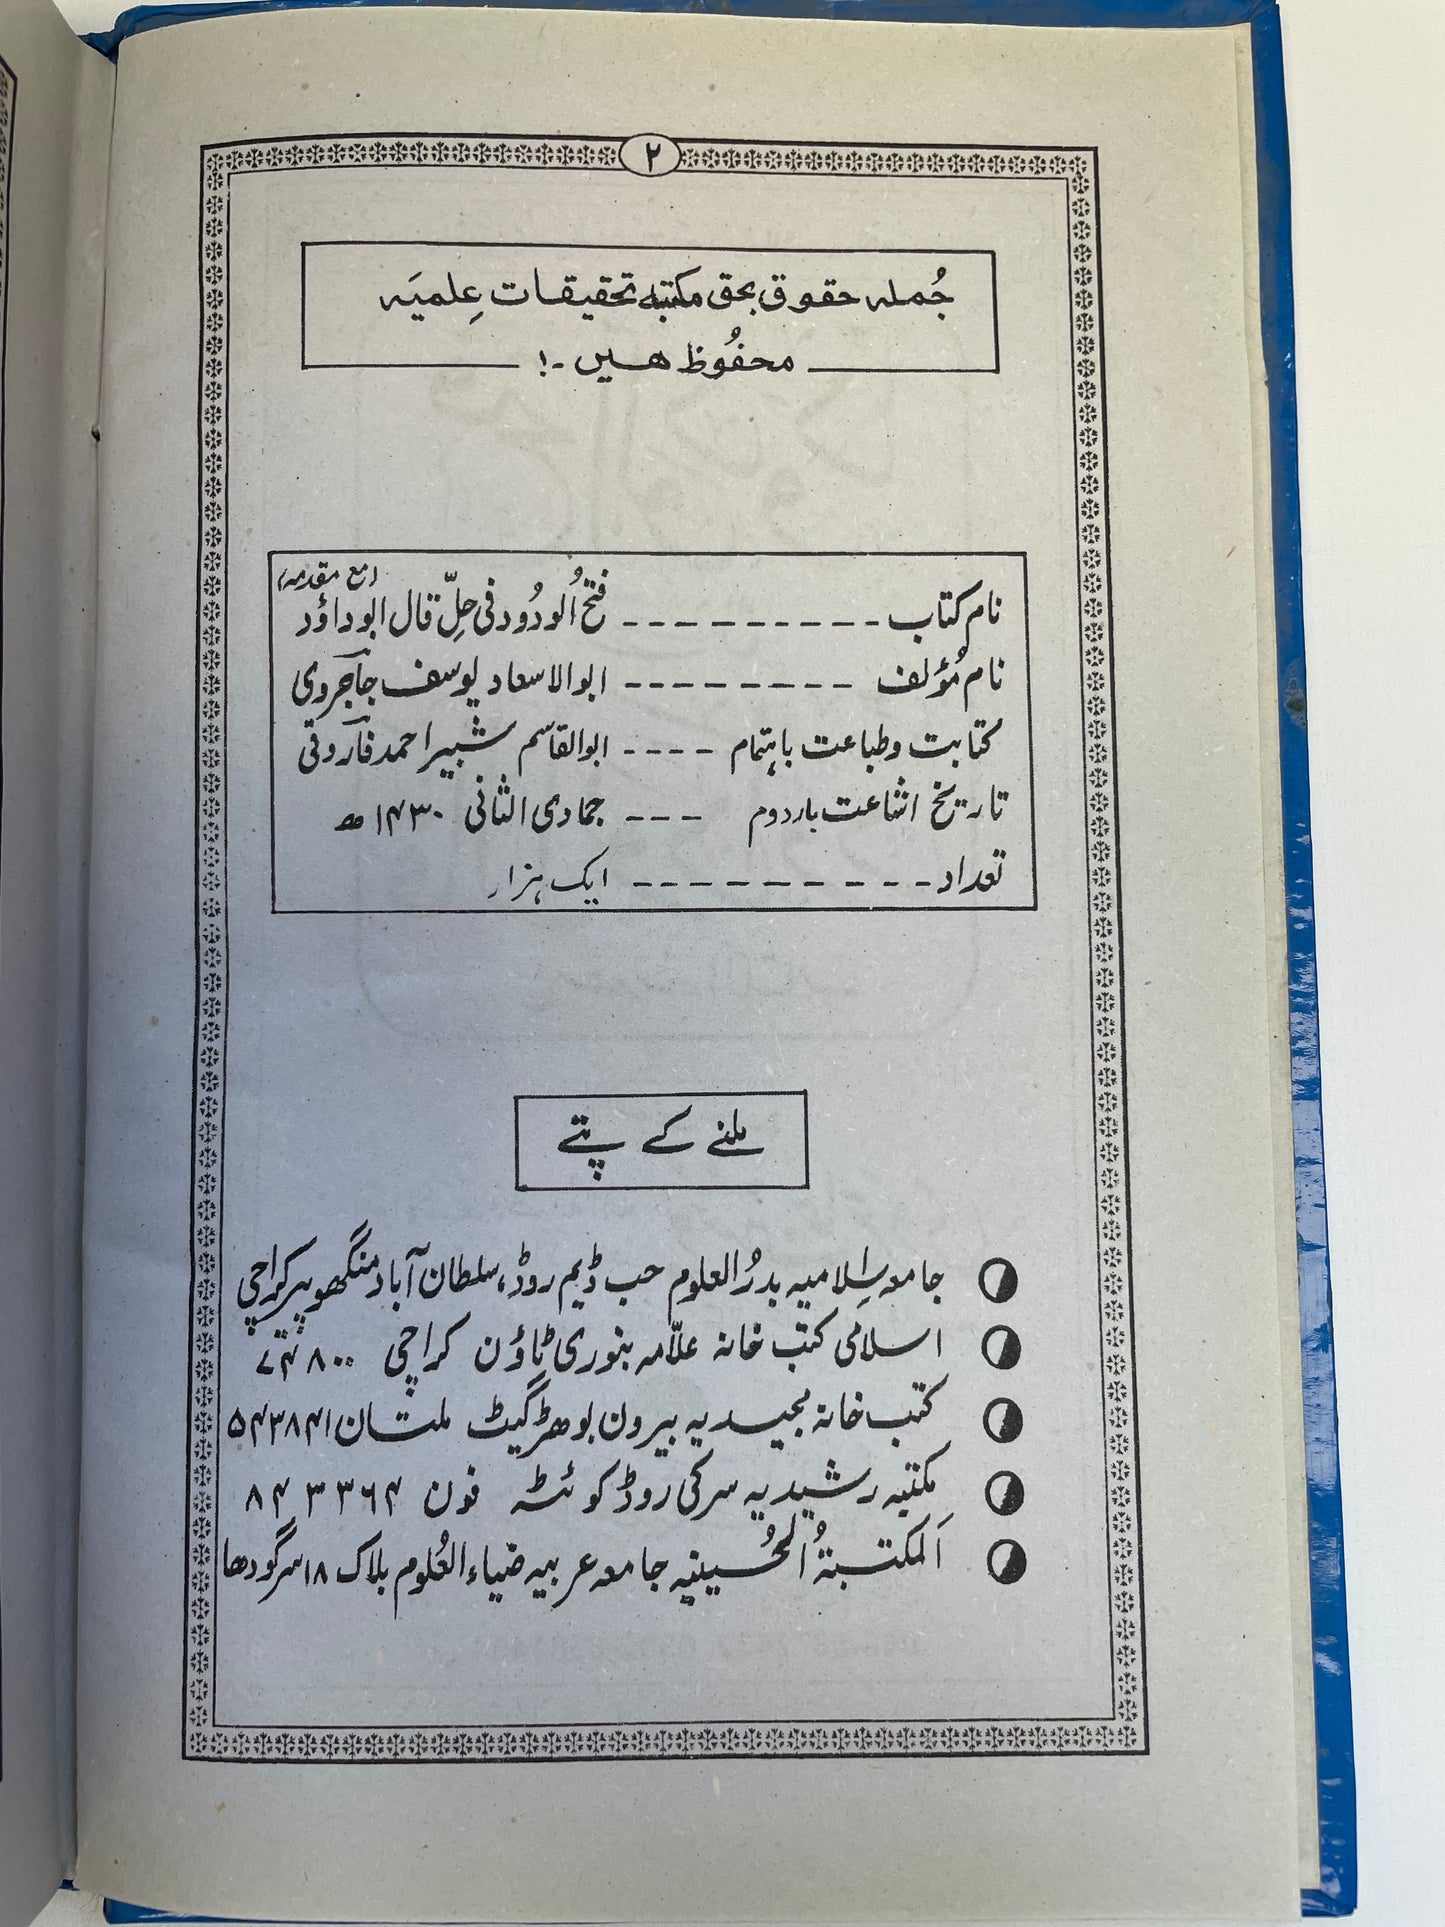 ۲
جُملہ حقوق بحق مکتبہ تحقیقات عِلمیَہ
محفُوظ ھیں -!
نام کتاب - - - - - - - - - فتحُ الودُود فی حلِّ قال ابو داؤد (مع مقدمہ)
نام مُؤلف - - - - - - - - ابوالاسعاد یوسف جاجروی
کتابت وطباعت باہتمام - - - - ابوالقاسم شبیر احمد فاروقی
تاریخ اشاعت باردوم - - - جمادی الثانی ۱۴۳۰ ھ
تعداد - - - - - - - - - ایک ہزار
ملنے کے پتے
جامعہ اسلامیہ بدرُ العلوم حب ڈیم روڈ، سلطان آباد منگھوپیر کراچی
اسلامی کتب خانہ علّامہ بنوری ٹاؤن کراچی ۷۴۸۰۰
کتب خانہ مجیدیہ بیرون بوھڑ گیٹ ملتان ۵۴۳۸۴۱
مکتبہ رشیدیہ سرکی روڈ کوئٹہ فون ۸۴۳۳۶۴
اَلمکتبۃُ الحُسینیہ جامعہ عربیہ ضیاء العُلوم بلاک ۱۸ سرگودھا